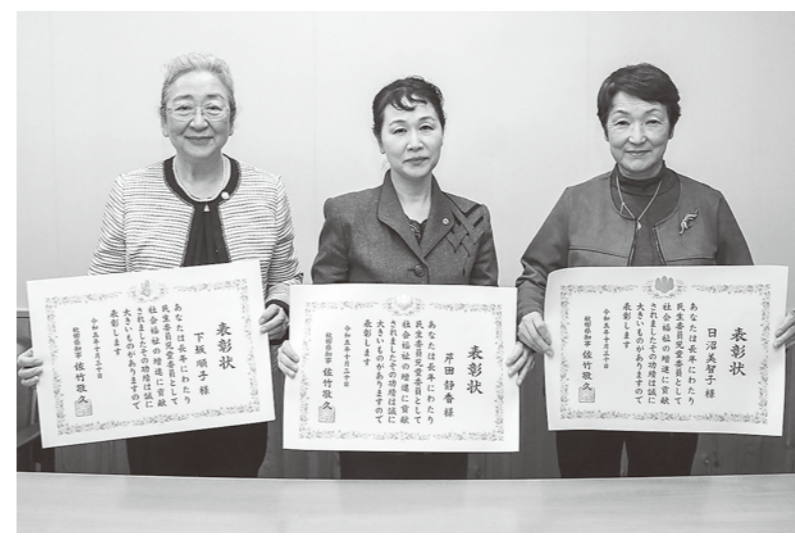 表彰状
下坂 順子 様
あなたは長年にわたり
民生委員児童委員として
社会福祉の増進に貢献
されましたその功績は誠に
大きいものがありますので
表彰します
令和五年十月三十日
秋田県知事 佐竹敬久
表彰状
芹田 静香 様
あなたは長年にわたり
民生委員児童委員として
社会福祉の増進に貢献
されましたその功績は誠に
大きいものがありますので
表彰します
令和五年十月三十日
秋田県知事 佐竹敬久
表彰状
日沼 美智子 様
あなたは長年にわたり
民生委員児童委員として
社会福祉の増進に貢献
されましたその功績は誠に
大きいものがありますので
表彰します
令和五年十月三十日
秋田県知事 佐竹敬久